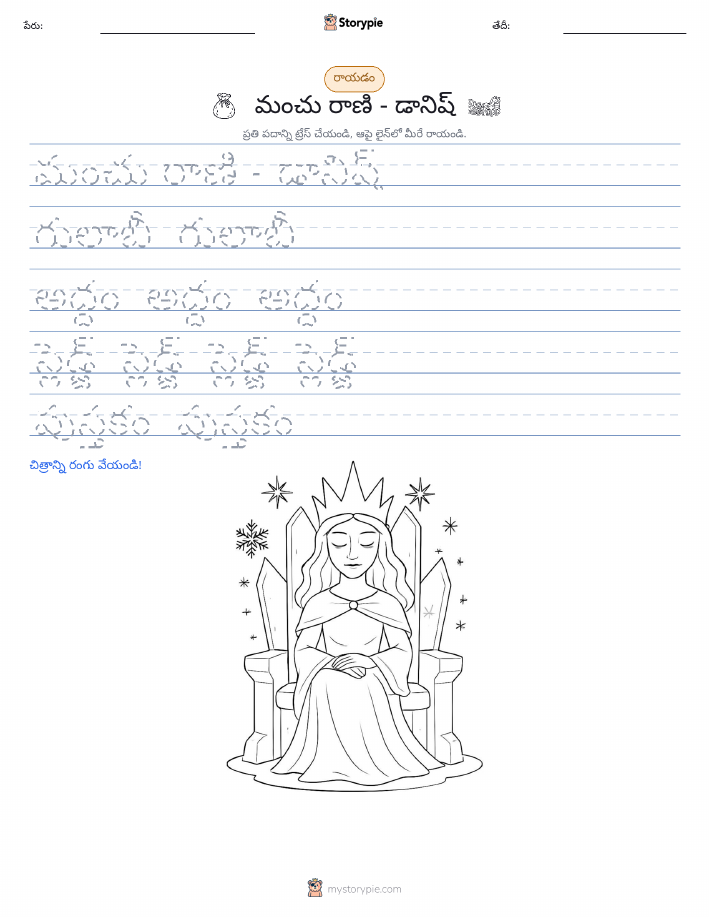 పేరు:
Storypie
తేదీ:
రాయడం
మంచు రాణి - డానిష్
ప్రతి పదాన్ని ట్రేస్ చేయండి, ఆపై లైన్‌లో మీరే రాయండి.
మంచు రాణి - డానిష్
గులాబీ గులాబీ
అద్దం అద్దం అద్దం
స్లెడ్జ్ స్లెడ్జ్ స్లెడ్జ్ స్లెడ్జ్
పుస్తకం పుస్తకం
చిత్రాన్ని రంగు వేయండి!
mystorypie.com